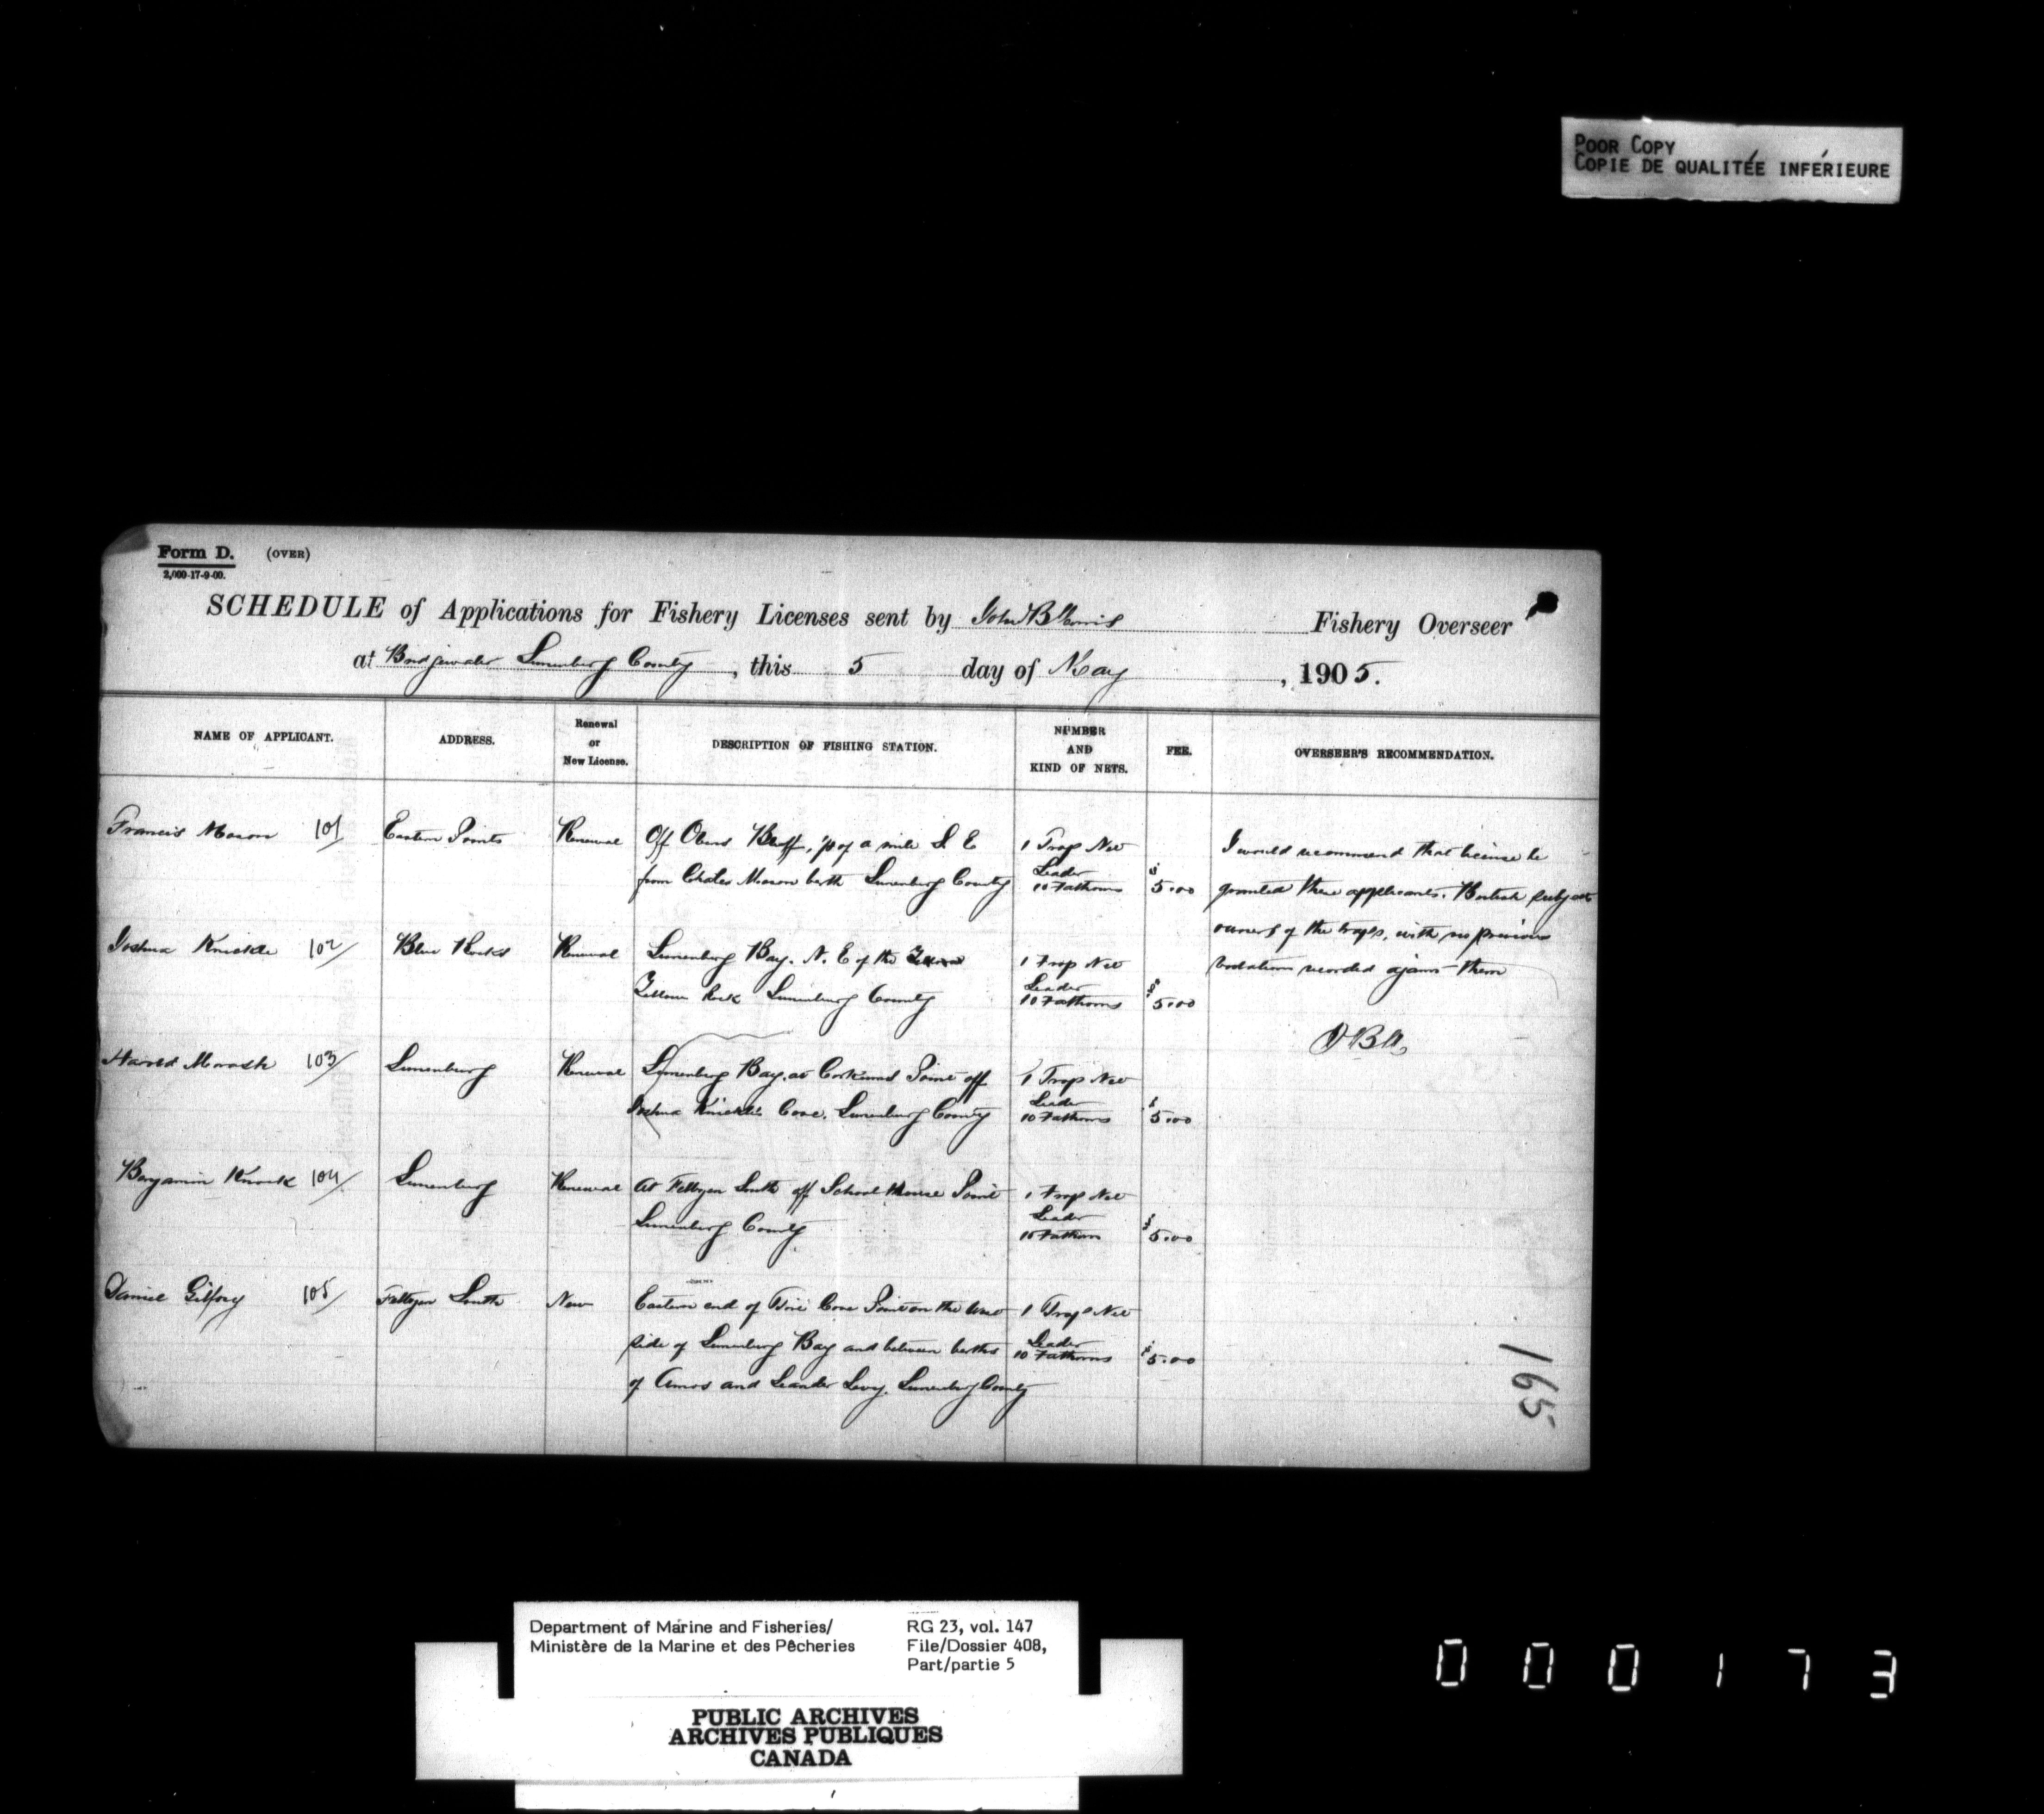 POOR COPY
COPIE DE QUALITÉE INFÉRIEURE
Form D. (OVER)
2,000-17-9-00.
SCHEDULE of Applications for Fishery Licenses sent by John B Morris Fishery Overseer
at Bridgewater Lunenburg County, this 5 day of May, 1905.
NAME OF APPLICANT.
ADDRESS.
Renewal
or
New License.
DESCRIPTION OF FISHING STATION.
NUMBER
AND
KIND OF NETS.
FEE.
OVERSEER'S RECOMMENDATION.
Francis Mason 101/ Eastern Points Renewal Off Bluff, of a mile S E 1 Trap Net
from Charles Mason berth Lunenburg County Leader
10 Fathoms $5.00
Joshua Knickle 102/ Blue Rocks Renewal Lunenburg Bay. N. E of the 1 Trap Net
Yellow Rock Lunenburg County Leader
10 Fathoms $5.00
Harold Morash 103/ Lunenburg Renewal Lunenburg Bay, at Point off 1 Trap Net
Joshua Knickle's Cove. Lunenburg County Leader
10 Fathoms $5.00
Benjamin Knock 104/ Lunenburg Renewal At Feltzen South off School House Point 1 Trap Net
Lunenburg County Leader
10 Fathom $5.00
Daniel 105/ Feltzen South New Eastern end of Cove Point on the West 1 Trap Net
side of Lunenburg Bay and between berths Leader
10 Fathoms $5.00
of Amos and Leander Levy. Lunenburg County
I would recommend that license be
granted these applicants. British subjects
owners of the traps, with no previous
violations recorded against them
165
Department of Marine and Fisheries/
Ministère de la Marine et des Pêcheries
RG 23, vol. 147
File/Dossier 408,
Part/partie 5
PUBLIC ARCHIVES
ARCHIVES PUBLIQUES
CANADA
000173